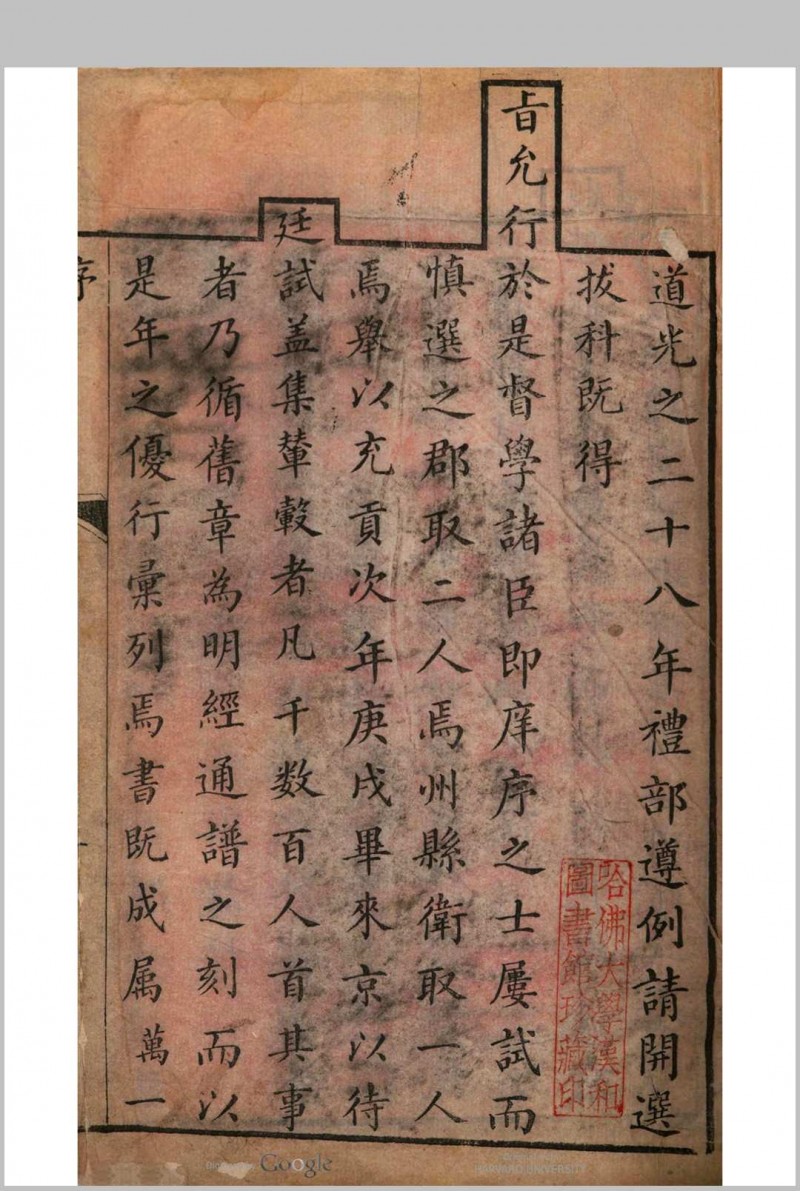 道光之二十八年禮部遵例請開選
拔科既得
旨允行於是督學諸臣即庠序之士屢試而
慎選之郡取二人焉州縣衛取一人
焉舉以充貢次年庚戌畢來京以待
廷試盖集輦轂者凡千数百人首其事
者乃循舊章為明經通譜之刻而以
是年之優行彙列焉書既成属萬一
序
哈佛大學漢和
圖書館珍藏印
Google
HARVARD UNIVERSITY